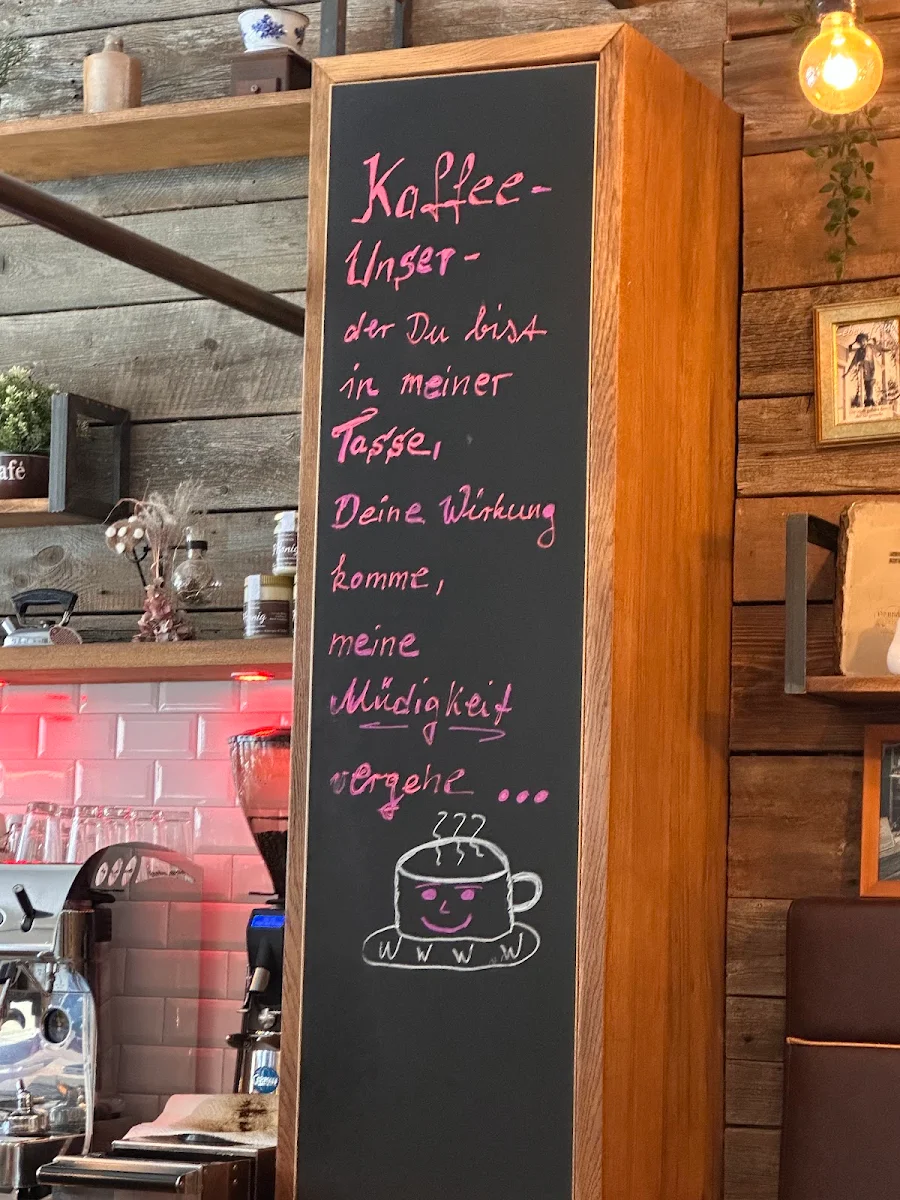 Kaffee-
Unser-
der Du bist
in meiner
Tasse,
Deine Wirkung
komme,
meine
Müdigkeit
vergehe ...
W W W W
afé